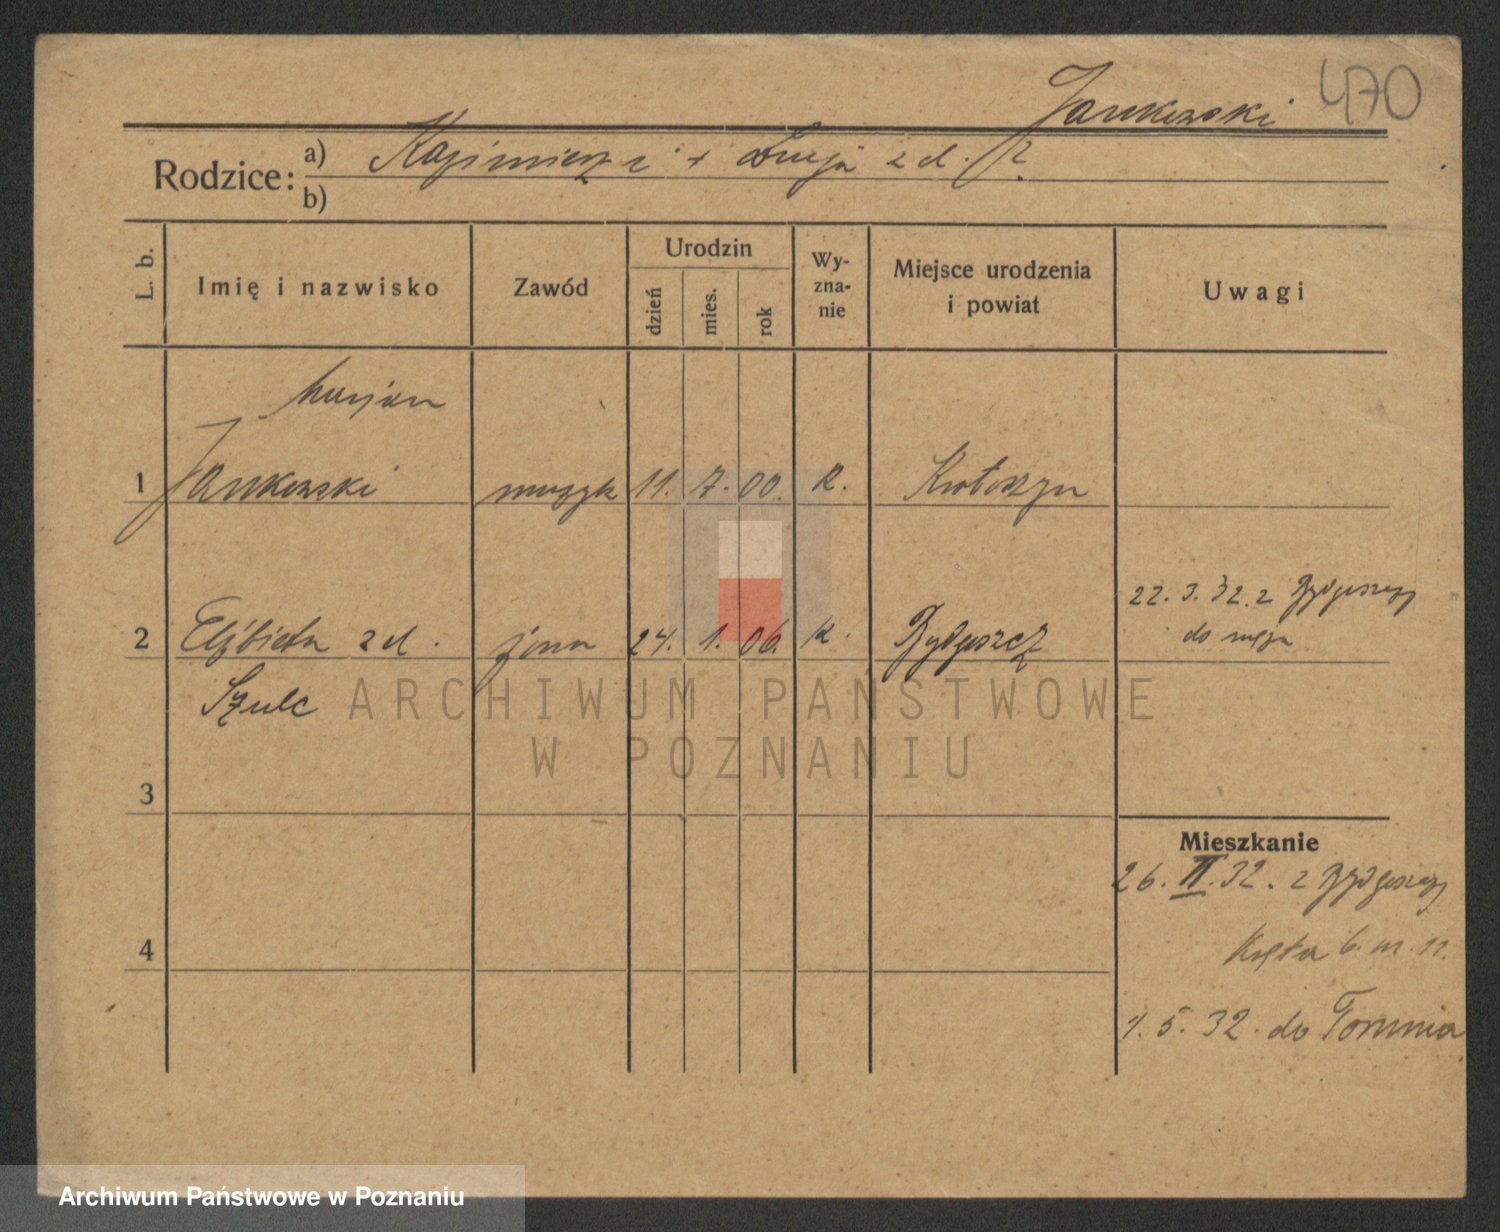 Jankowski 470
Rodzice: a) Kazimierz i Łucja z d. ?
b)
L. b. Imię i nazwisko Zawód Urodzin dzień mies. rok Wy-zna-nie Miejsce urodzenia i powiat Uwagi
Marjan
1 Jankowski muzyk 11. 7. 00. k. Krotoszyn
22. 3. 32. z Bydgoszczy
do męża
2 Elżbieta z d. żona 24. 1. 06. k. Bydgoszcz
Szulc
ARCHIWUM PAŃSTWOWE
W POZNANIU
3
Mieszkanie
26. II. 32. z Bydgoszczy
6. m. 11.
4
1. 5. 32. do Torunia
Archiwum Państwowe w Poznaniu